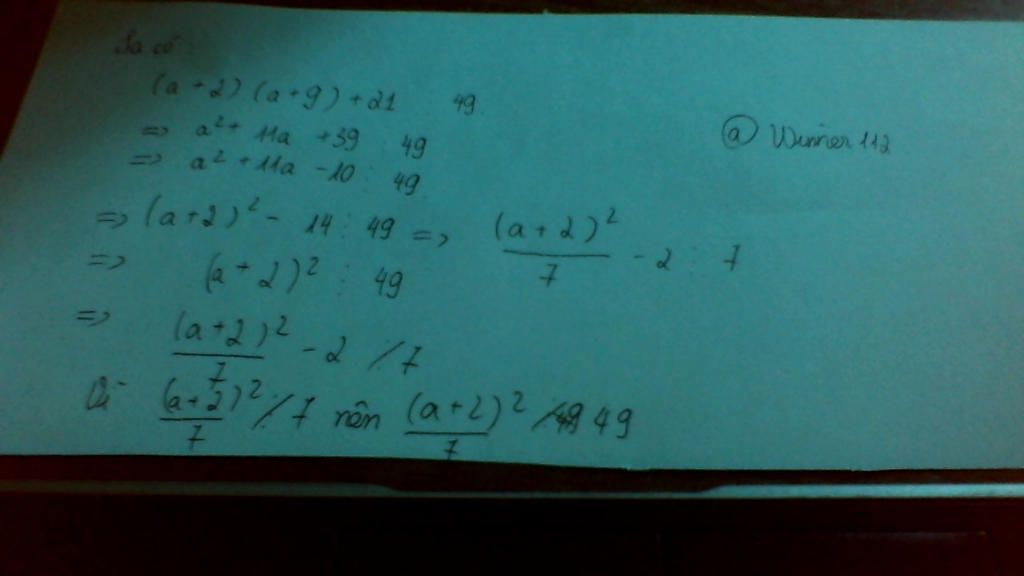 Ta có:
(a + 2) (a + 9) + 21 ⋮ 49
=> a² + 11a + 39 ⋮ 49
=> a² + 11a - 10 ⋮ 49
=> (a + 2)² - 14 ⋮ 49 => (a + 2)²/7 - 2 ⋮ 7
=> (a + 2)² ⋮ 49
=> (a + 2)²/7 - 2 ⋮̸ 7
Vì (a + 2)²/7 ⋮̸ 7 nên (a + 2)²/7 ⋮̸ 49
@ Winner 112